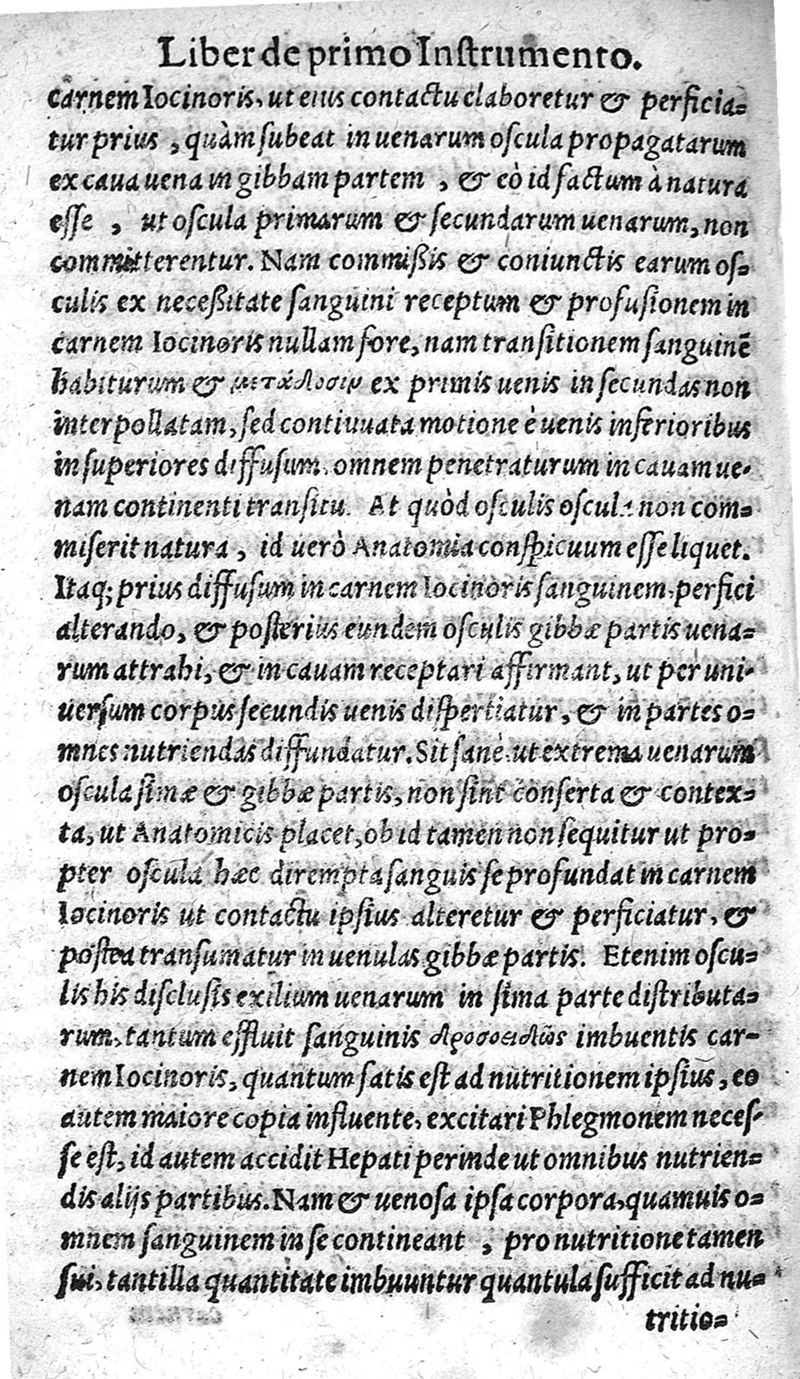 Liber de primo Instrumento.
carnem Iocinoris, ut eius contactu elaboretur & perficia=
tur prius, quàm subeat in uenarum oscula propagatarum
ex caua uena in gibbam partem, & eò id factum à natura
esse, ut oscula primarum & secundarum uenarum, non
committerentur. Nam commißis & coniunctis earum os=
culis ex neceßitate sanguini receptum & profusionem in
carnem Iocinoris nullam fore, nam transitionem sanguinē
habiturum & ex primis uenis in secundas non
interpollatam, sed contiuuata motione è uenis inferioribus
in superiores diffusum, omnem penetraturum in cauam ue=
nam continenti transitu. At quòd osculis oscula non com=
miserit natura, id uerò Anatomia conspicuum esse liquet.
Itaq; prius diffusum in carnem Iocinoris sanguinem perfici
alterando, & posterius eundem osculis gibbæ partis uena=
rum attrahi, & in cauam receptari affirmant, ut per uni=
uersum corpus secundis uenis dispertiatur, & in partes o=
mnes nutriendas diffundatur. Sit sanè ut extrema uenarum
oscula simæ & gibbæ partis, non sint conserta & contex=
ta, ut Anatomicis placet, ob id tamen non sequitur ut pro=
pter oscula hæc dirempta sanguis se profundat in carnem
Iocinoris ut contactu ipsius alteretur & perficiatur, &
postea transumatur in uenulas gibbæ partis. Etenim oscu=
lis his disclusis exilium uenarum in sima parte distributa=
rum, tantum effluit sanguinis δροσοειδῶς imbuentis car=
nem Iocinoris, quantum satis est ad nutritionem ipsius, eo
autem maiore copia influente, excitari Phlegmonem neces=
se est, id autem accidit Hepati perinde ut omnibus nutrien=
dis alijs partibus. Nam & uenosa ipsa corpora, quamuis o=
mnem sanguinem in se contineant, pro nutritione tamen
sui, tantilla quantitate imbuuntur quantula sufficit ad nu=
tritio=